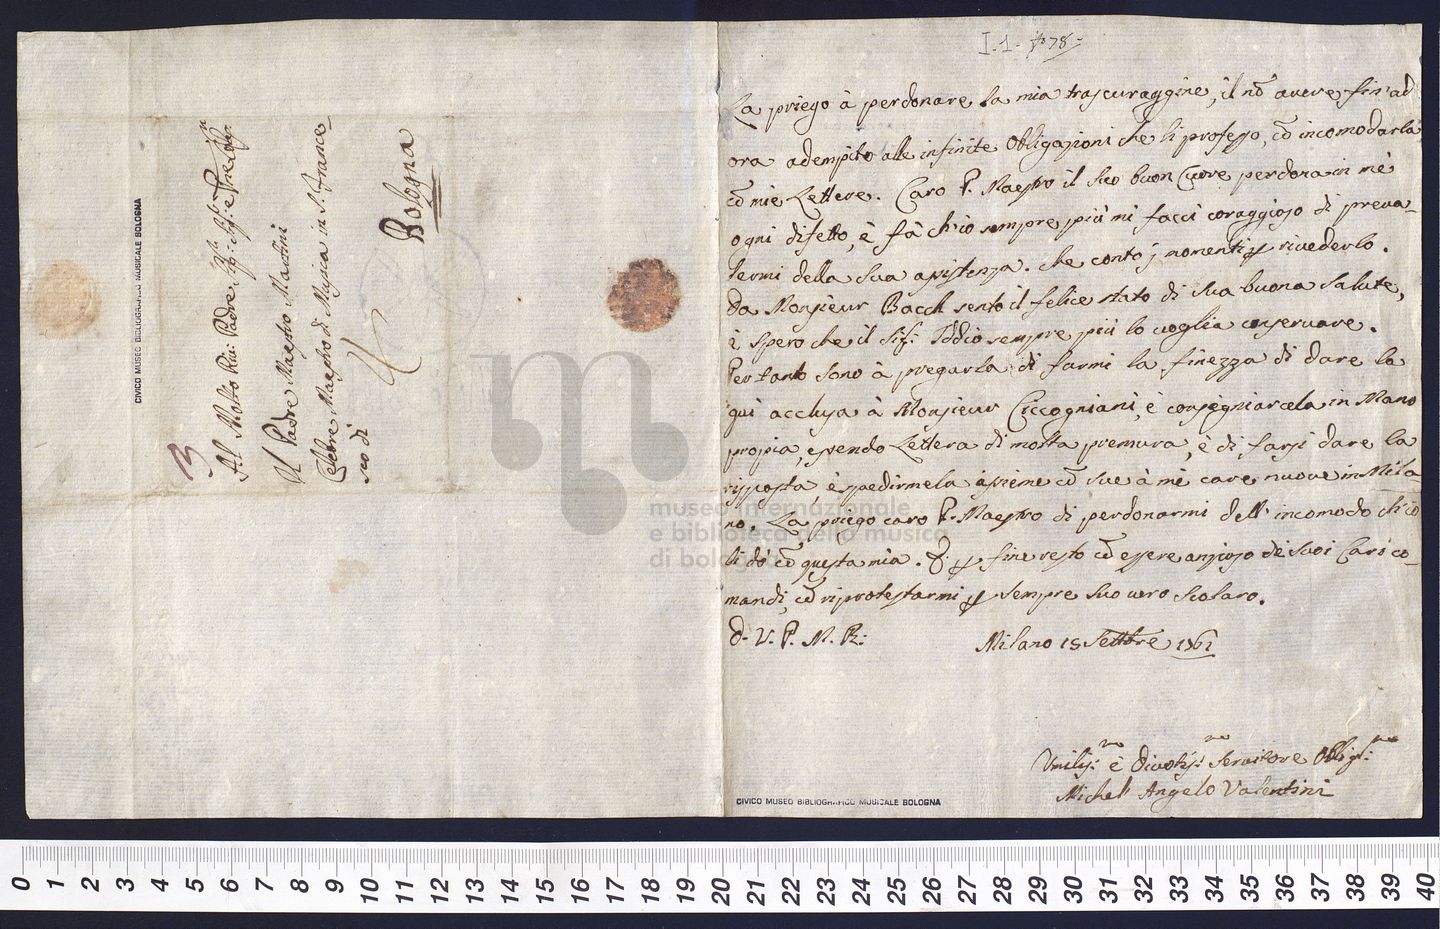 I. 1. 78
La priego à perdonare la mia trascuraggine, il nō avere fin'ad
ora adempito alle infinite Obligazioni che li professo, cō incomodarla
cō mie Lettere. Caro P. Maestro il suo buon Cuore perdona in mé
ogni difetto, è fà ch'io sempre più mi facci coraggioso di preva-
lermi della Sua assistenza. che conto j momenti p rivederlo.
Da Monsieur Bach sento il felice stato di Sua buona Salute,
è spero che il Sig: Iddio sempre più lo voglia conservare.
Pertanto sono à pregarla di farmi la finezza di dare la
qui acclusa à Monsieur Ciccogniani, è consegniarcela in Mano
propia, essendo Lettera di molta premura, è di farsi dare la
risposta è spedirmela assieme cō sue à mé care nuove in Mila-
no. La priego caro P. Maestro di perdonarmi dell'incomodo ch'io
li dó cō questa mia. & p fine resto cō essere ansioso de suoi Cari co-
mandi, cō riprotestarmi p sempre suo vero scolaro.
d. V. P. M. R:
Milano 15 Settbre 1761
Umilis:mo è Divotis:mo Servitore Obligt:mo
Michel Angelo Valentini
Al Molto Rev: Padre
Il Padre Maestro Martini
Celebre Maestro di Musica in S. France
sco di
Bologna
CIVICO MUSEO BIBLIOGRAFICO MUSICALE BOLOGNA
CIVICO MUSEO BIBLIOGRAFICO MUSICALE BOLOGNA
museo internazionale
e biblioteca della musica
di bologna
0 1 2 3 4 5 6 7 8 9 10 11 12 13 14 15 16 17 18 19 20 21 22 23 24 25 26 27 28 29 30 31 32 33 34 35 36 37 38 39 40